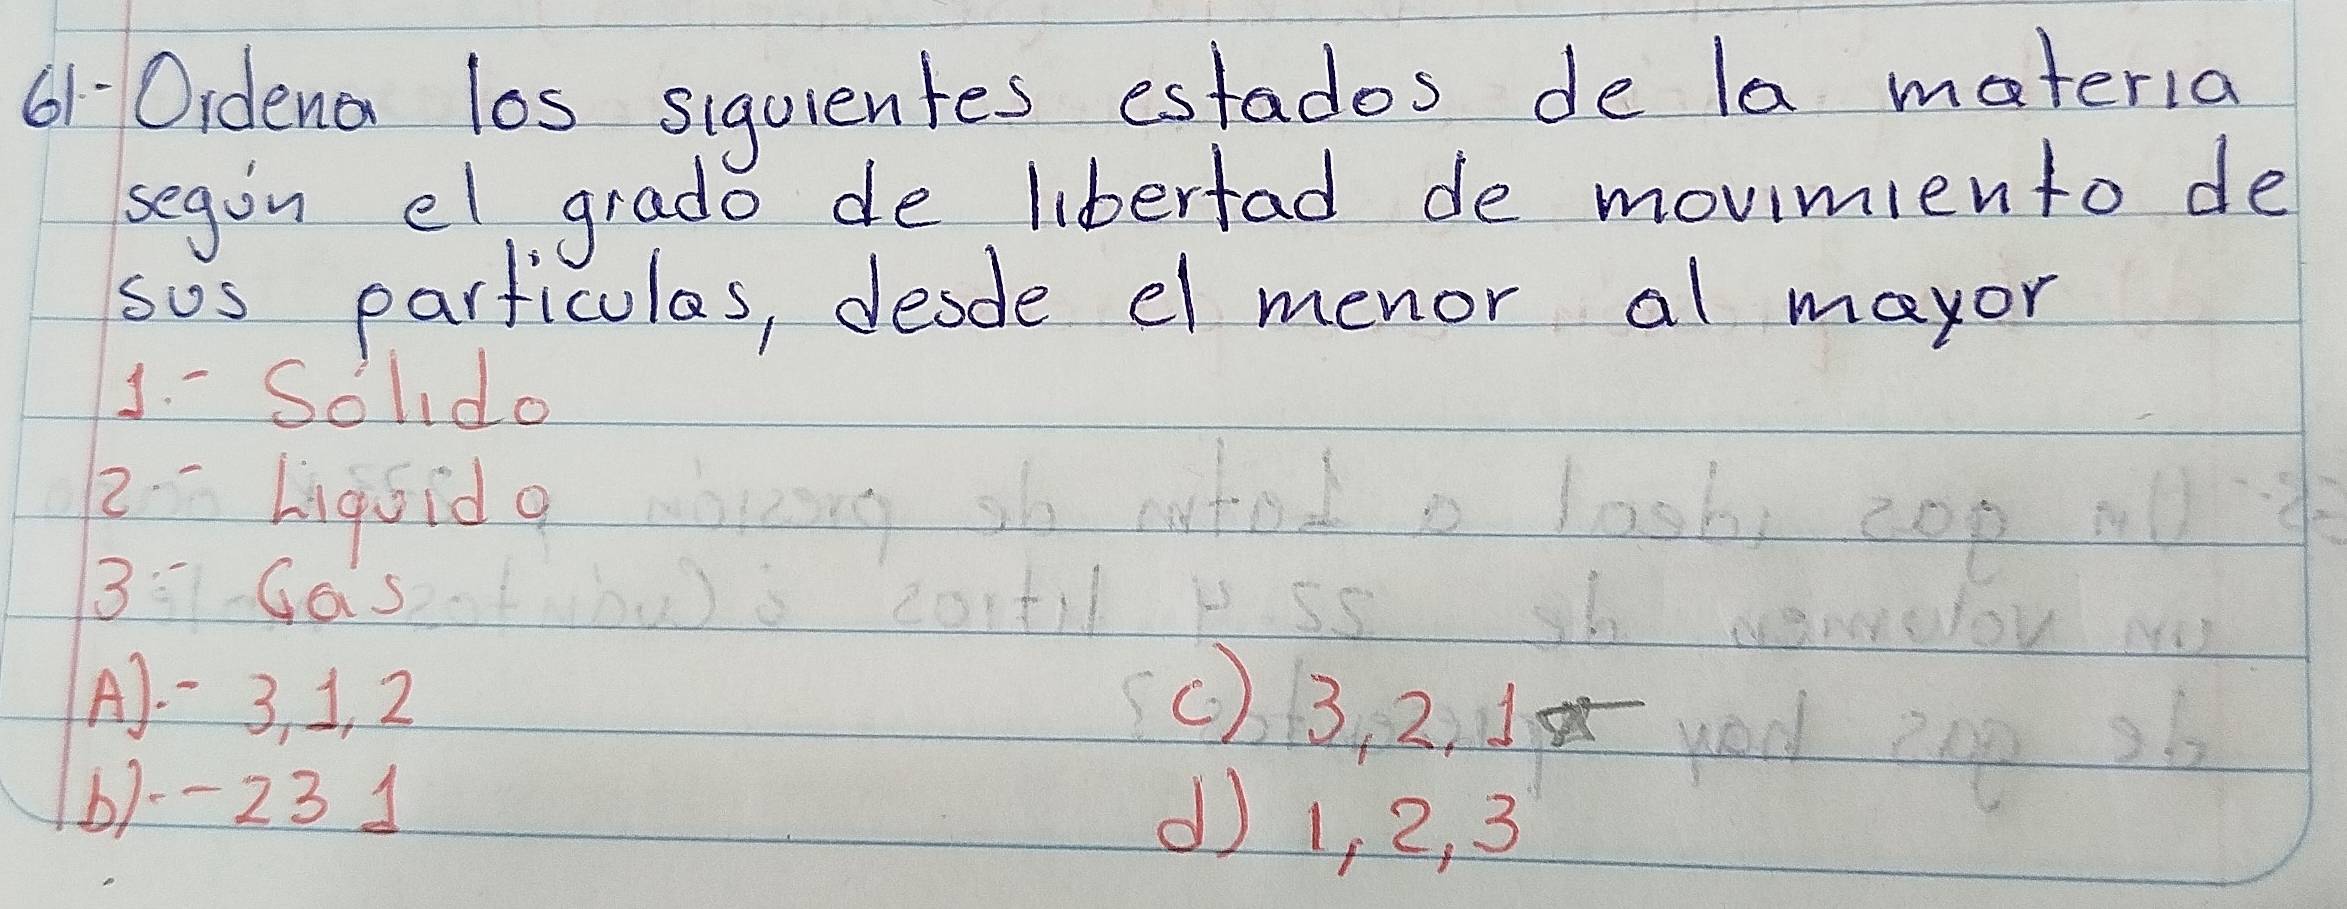 61.- Ordena los siguientes estados de la materia
según el grado de libertad de movimiento de
sus partículas, desde el menor al mayor
1.- Sólido
2.- Liquido
3.- Gas
A).- 3, 1, 2
c) 3, 2, 1
b).- 2 3 1
d) 1, 2, 3